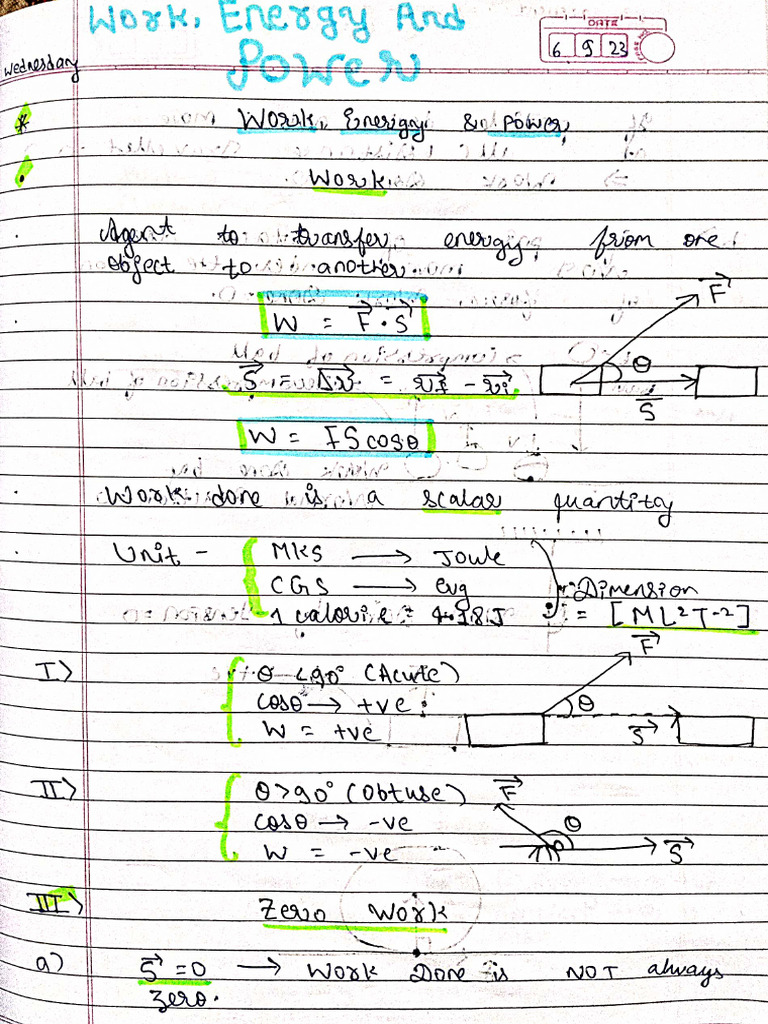 Work, Energy And
Power
DATE
6 9 23
Wednesday
* Work, Energy & Power
• Work
Agent to transfer energy from one
object to another
W = F⃗ · S⃗
F⃗
θ
S⃗ = Δr⃗ = r⃗f - r⃗i
S⃗
W = FS cosθ
Work done is a scalar quantity
Unit - MKS → Joule
CGS → erg
Dimension
1 calorie = 4.18 J
= [ML²T⁻²]
F⃗
I> θ < 90° (Acute)
cosθ → +ve
θ
W = +ve
S⃗
II> θ > 90° (Obtuse)
F⃗
cosθ → -ve
θ
W = -ve
S⃗
III> Zero Work
a) S⃗ = 0 → Work Done is NOT always
zero.